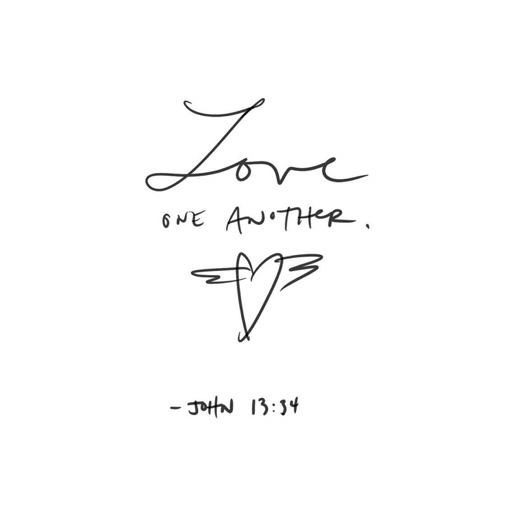 Love
ONE ANOTHER.
- JOHN 13:34